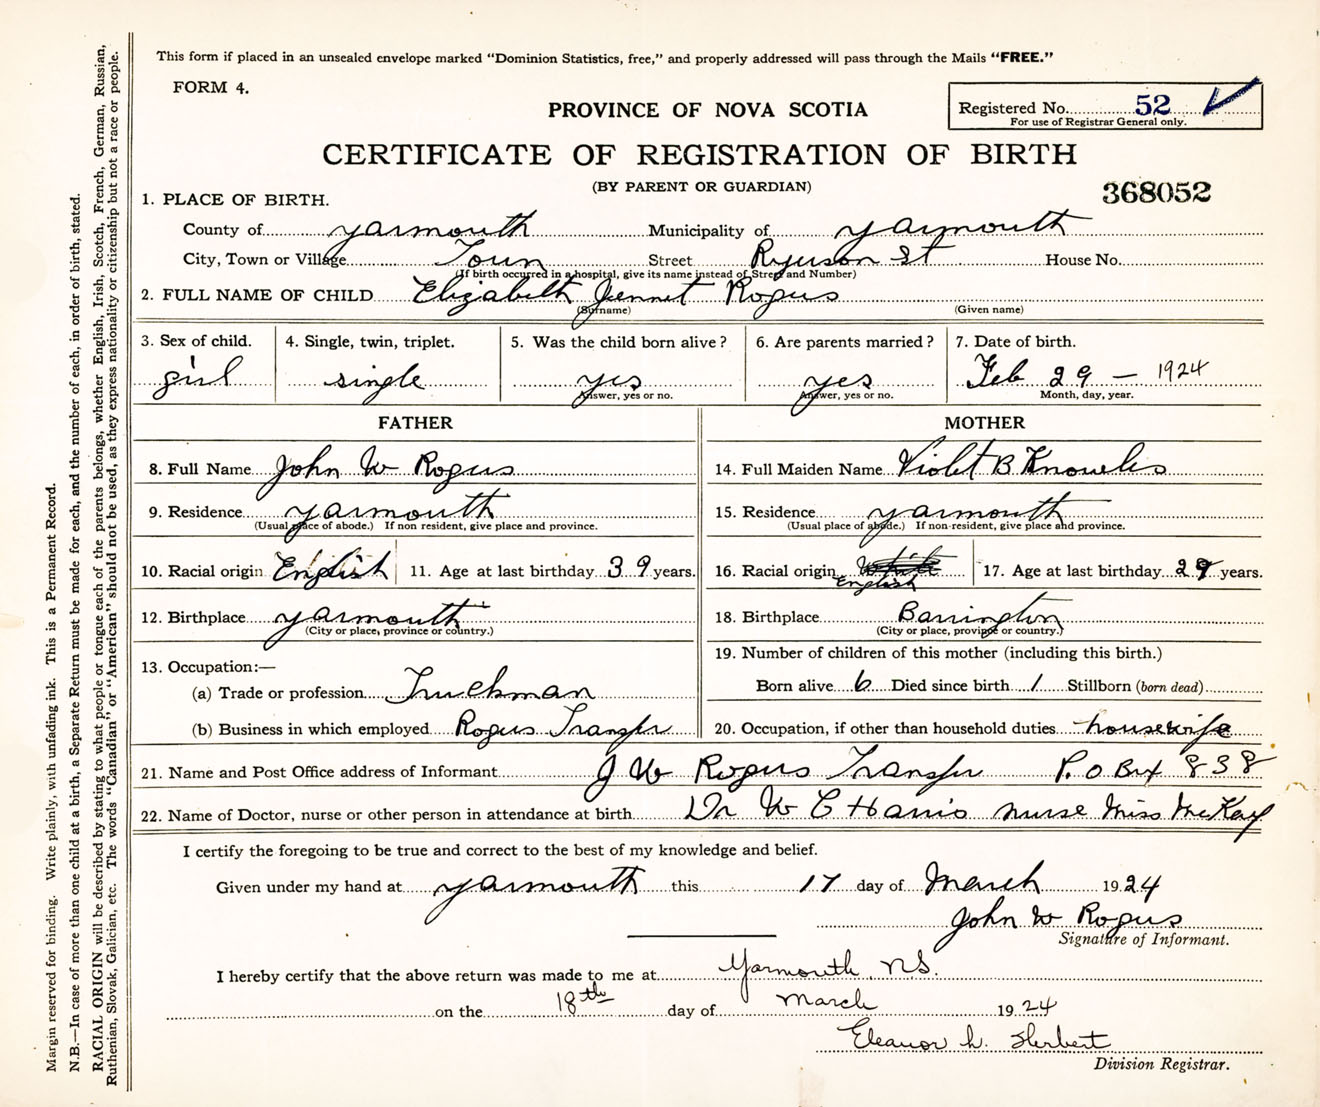 This form if placed in an unsealed envelope marked “Dominion Statistics, free,” and properly addressed will pass through the Mails “FREE.”
FORM 4.
PROVINCE OF NOVA SCOTIA
Registered No. 52
For use of Registrar General only.
CERTIFICATE OF REGISTRATION OF BIRTH
(BY PARENT OR GUARDIAN)
368052
1. PLACE OF BIRTH.
County of yarmouth Municipality of yarmouth
City, Town or Village Town Street Ryerson St House No.
(If birth occurred in a hospital, give its name instead of Street and Number)
2. FULL NAME OF CHILD Elizabeth Jennet Rogers
(Surname) (Given name)
3. Sex of child. 4. Single, twin, triplet. 5. Was the child born alive? 6. Are parents married? 7. Date of birth.
girl single yes yes Feb 29 — 1924
Answer, yes or no. Answer, yes or no. Month, day, year.
FATHER
8. Full Name John W Rogers
9. Residence yarmouth
(Usual place of abode.) If non resident, give place and province.
10. Racial origin English 11. Age at last birthday 39 years.
12. Birthplace yarmouth
(City or place, province or country.)
13. Occupation:—
(a) Trade or profession Truckman
(b) Business in which employed Rogers Transfer
MOTHER
14. Full Maiden Name Violet B Knowles
15. Residence yarmouth
(Usual place of abode.) If non-resident, give place and province.
16. Racial origin White English 17. Age at last birthday 29 years.
18. Birthplace Barrington
(City or place, province or country.)
19. Number of children of this mother (including this birth.)
Born alive 6 Died since birth 1 Stillborn (born dead)
20. Occupation, if other than household duties housewife
21. Name and Post Office address of Informant J W Rogers Transfer P.O Box 838
22. Name of Doctor, nurse or other person in attendance at birth Dr W C Harris nurse Miss McKay
I certify the foregoing to be true and correct to the best of my knowledge and belief.
Given under my hand at yarmouth this 17 day of March 1924
John W Rogers
Signature of Informant.
I hereby certify that the above return was made to me at Yarmouth N.S.
on the 18th day of March 1924
Eleanor L. Herbert
Division Registrar.
Margin reserved for binding. Write plainly, with unfading ink. This is a Permanent Record.
N.B.—In case of more than one child at a birth, a Separate Return must be made for each, and the number of each, in order of birth, stated.
RACIAL ORIGIN will be described by stating to what people or tongue each of the parents belongs, whether English, Irish, Scotch, French, German, Russian,
Ruthenian, Slovak, Galician, etc. The words “Canadian” or “American” should not be used, as they express nationality or citizenship but not a race or people.